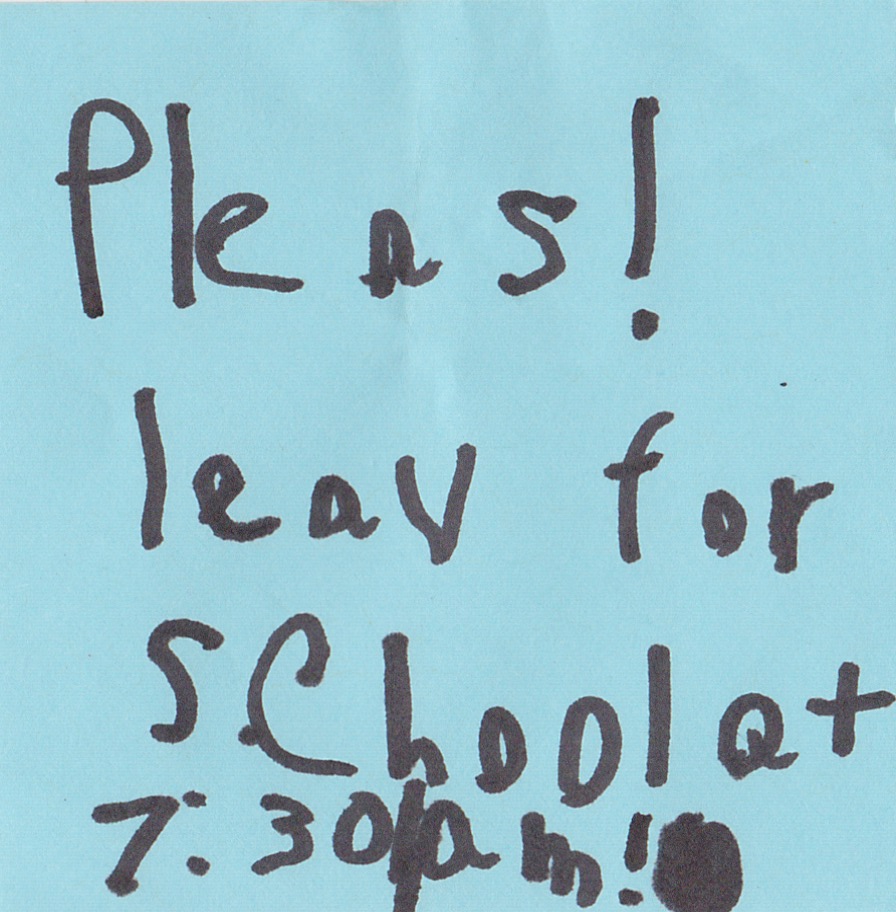 Pleas!
leav for
SChool at
7:30 am!